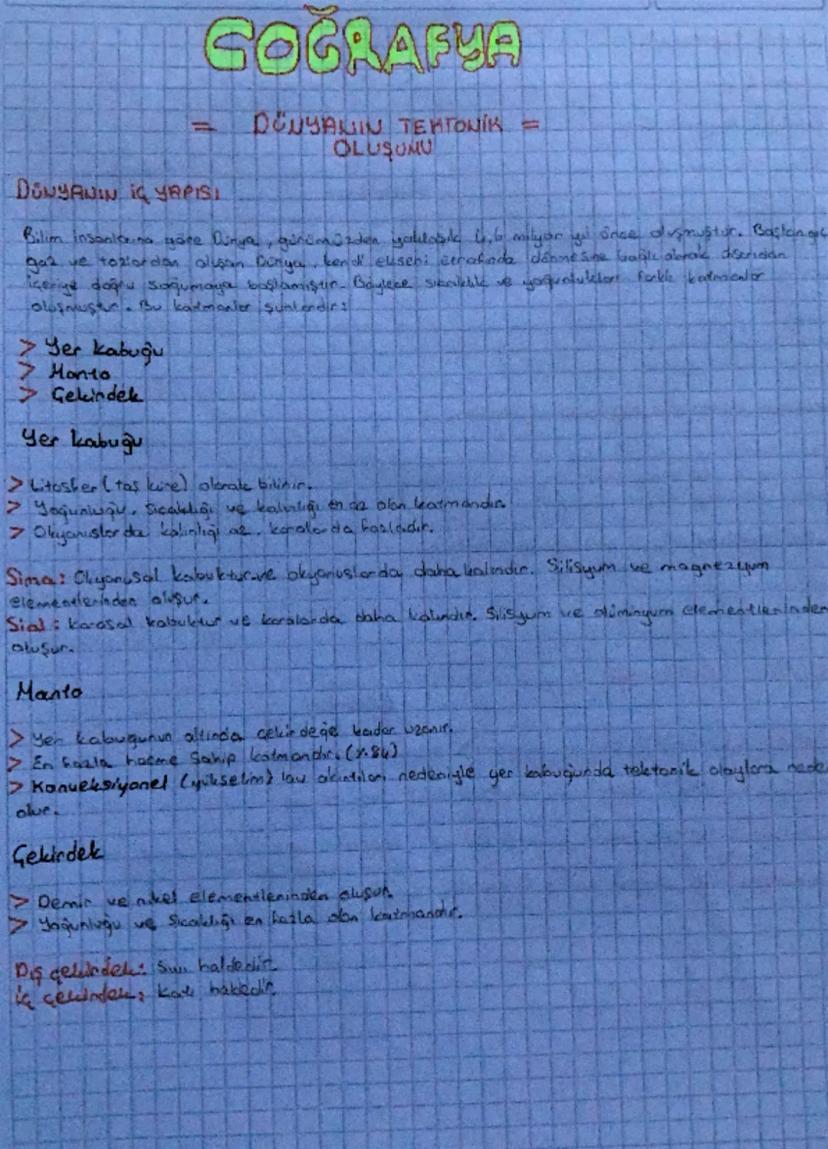 COĞRAFYA
= DÜNYANIN TEKTONİK =
OLUŞUMU
DÜNYANIN İÇ YAPISI
Bilim insanlarına göre Dünya, günümüzden yaklaşık 4,6 milyar yıl önce oluşmuştur. Başlangıç
gaz ve tozlardan oluşan Dünya, kendi ekseni etrafında dönmesine bağlı olarak dışarıdan
içeriye doğru soğumaya başlamıştır. Böylece sıcaklık ve yoğunlukları farklı katmanlar
oluşmuştur. Bu katmanlar şunlardır:
> Yer kabuğu
> Manto
> Çekirdek
Yer kabuğu
> Litosfer (taş küre) olarak bilinir.
> Yoğunluğu, sıcaklığı ve kalınlığı en az olan katmandır.
> Okyanuslarda kalınlığı az, karalarda fazladır.
Sima: Okyanusal kabuktur ve okyanuslarda daha kalındır. Silisyum ve magnezyum
elementlerinden oluşur.
Sial: Karasal kabuktur ve karalarda daha kalındır. Silisyum ve alüminyum elementlerinden
oluşur.
Manto
> Yer kabuğunun altında çekirdeğe kadar uzanır.
> En fazla hacme sahip katmandır. (%84)
> Konveksiyonel (yükselim) lav akıntıları nedeniyle yer kabuğunda tektonik olaylara nede
olur.
Çekirdek
> Demir ve nikel elementlerinden oluşur.
> Yoğunluğu ve sıcaklığı en fazla olan katmandır.
Dış çekirdek: Sıvı haldedir.
İç çekirdek: Katı haldedir.